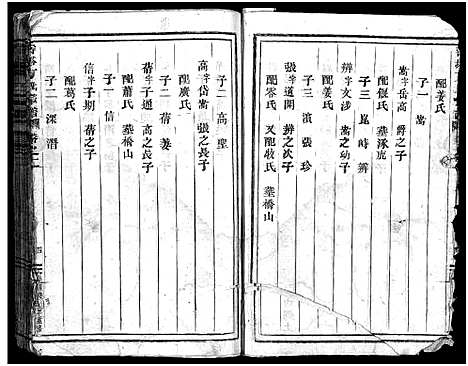 配姜氏
子一 嵩
嵩 字岳高 爵之子
配銀氏 葬涿虎
子三 崑 時 辨
辨 字文涉 嵩之幼子
配姜氏
子三 濱 張 珍
張 字道開 辨之次子
配岑氏 又配牧氏 葬橋山
子二 高 聖
高 字岱嵩 張之長子
配廣氏
子二 蒨 美
蒨 字子通 高之長子
配蕭氏 葬橋山
子一 信
信 字子期 蒨之子
配葛氏
子二 深 潛